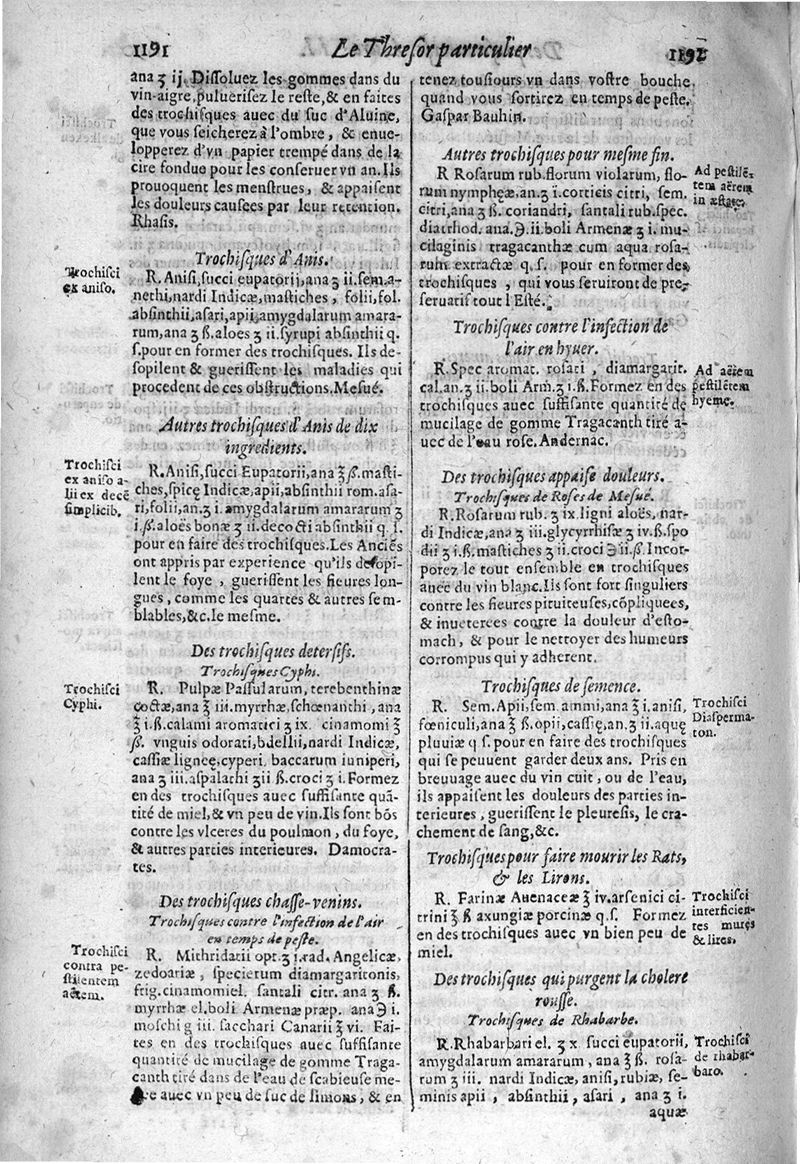 1191
Le Thresor particulier
1192
ana ʒ ij. Dissoluez les gommes dans du
vin-aigre, puluerisez le reste, & en faites
des trochisques auec du suc d'Aluine,
que vous seicherez à l'ombre, & enue-
lopperez d'vn papier trempé dans de la
cire fondue pour les conseruer vn an. Ils
prouoquent les menstrues, & appaisent
les douleurs causees par leur retention.
Rhasis.
Trochisques d'Anis.
Trochisci
ex aniso.
R. Anisi, succi eupatorij, ana ʒ ii. sem. a-
nethi, nardi Indicæ, mastiches, folii, fol.
absinthii, asari, apii, amygdalarum amara-
rum, ana ʒ ß. aloes ʒ ii. syrupi absinthii q.
s. pour en former des trochisques. Ils de-
sopilent & guerissent les maladies qui
procedent de ces obstructions. Mesué.
Autres trochisques d'Anis de dix
ingredients.
Trochisci
ex aniso a-
lii ex decē
simplicib.
R. Anisi, succi Eupatorii, ana ℥ ß. masti-
ches, spicę Indicæ, apii, absinthii rom. asa-
ri, folii, an. ʒ i. amygdalarum amararum ʒ
i. ß. aloës bonæ ʒ ii. decocti absinthii q. s.
pour en faire des trochisques. Les Anciēs
ont appris par experience qu'ils desopi-
lent le foye, guerissent les fieures lon-
gues, comme les quartes & autres sem-
blables, &c. le mesme.
Des trochisques detersifs.
Trochisques Cyphi.
Trochisci
Cyphi.
R. Pulpæ Passularum, terebenthinæ
coctæ, ana ℥ iii. myrrhæ, schœnanchi, ana
℥ i. ß. calami aromatici ʒ ix. cinamomi ℥
ß. vnguis odorati, bdellii, nardi Indicæ,
cassiæ ligneę, cyperi, baccarum iuniperi,
ana ʒ iii. aspalachi ʒ ii ß. croci ʒ i. Formez
en des trochisques auec suffisante quā-
tité de miel, & vn peu de vin. Ils sont bōs
contre les vlceres du poulmon, du foye,
& autres parties interieures. Damocra-
tes.
Des trochisques chasse-venins.
Trochisques contre l'infection de l'air
en temps de peste.
Trochisci
contra pe-
stilentem
aërem.
R. Mithridatii opt. ʒ i. rad. Angelicæ,
zedoariæ, specierum diamargaritonis,
frig. cinamomi el. santali citr. ana ʒ ß.
myrrhæ el. boli Armenæ præp. ana ℈ i.
moschi g iii. sacchari Canarii ℥ vi. Fai-
tes en des trochisques auec suffisante
quantité de mucilage de gomme Traga-
canth tiré dans de l'eau de scabieuse me-
auec vn peu de suc de limons, & en
tenez tousiours vn dans vostre bouche
quand vous sortirez en temps de peste.
Gaspar Bauhin.
Autres trochisques pour mesme fin.
Ad pestilē-
tem aërem
in æstate.
R Rosarum rub. florum violarum, flo-
rum nymphęæ. an. ʒ i. corticis citri, sem.
citri, ana ʒ ß. coriandri, santali rub. spec.
diatrhod. ana. ℈. ii. boli Armenæ ʒ i. mu-
cilaginis tragacanthæ cum aqua rosa-
rum extractæ q. s. pour en former des
trochisques, qui vous seruiront de pre-
seruatif tout l'Esté.
Trochisques contre l'infection de
l'air en hyuer.
Ad aërem
pestilētem
hyeme.
R. Spec aromat. rosati, diamargarit.
cal. an. ʒ ii. boli Arm. ʒ i. ß. Formez en des
trochisques auec suffisante quantité de
mucilage de gomme Tragacanth tiré a-
uec de l'eau rose. Andernac.
Des trochisques appaise douleurs.
Trochisques de Roses de Mesué.
R. Rosarum rub. ʒ ix. ligni aloës, nar-
di Indicæ, ana ʒ iii. glycyrrhisæ ʒ iv. ß. spo
dii ʒ i. ß. mastiches ʒ ii. croci ℈ ii. ß. Incor-
porez le tout ensemble en trochisques
auec du vin blanc. Ils sont fort singuliers
contre les fieures pituiteuses, cōpliquees,
& inueterees contre la douleur d'esto-
mach, & pour le nettoyer des humeurs
corrompus qui y adherent.
Trochisques de semence.
Trochisci
Diasperma-
ton.
R. Sem. Apii, sem. ammi, ana ℥ i. anisi,
fœniculi, ana ℥ ß. opii, cassię, an. ʒ ii. aquę
pluuiæ q s. pour en faire des trochisques
qui se peuuent garder deux ans. Pris en
breuuage auec du vin cuit, ou de l'eau,
ils appaisent les douleurs des parties in-
terieures, guerissent le pleuresis, le cra-
chement de sang, &c.
Trochisques pour faire mourir les Rats,
& les Lirons.
Trochisci
interficien-
tes mures
& lires.
R. Farinæ Auenaceæ ℥ iv. arsenici ci-
trini ℥ ß axungiæ porcinæ q. s. Formez
en des trochisques auec vn bien peu de
miel.
Des trochisques qui purgent la cholere
rousse.
Trochisques de Rhabarbe.
Trochisci
de rhabar-
baro.
R. Rhabarbari el. ʒ x succi eupatorii,
amygdalarum amararum, ana ℥ ß. rosa-
rum ʒ iii. nardi Indicæ, anisi, rubiæ, se-
minis apii, absinthii, asari, ana ʒ i.
aquæ